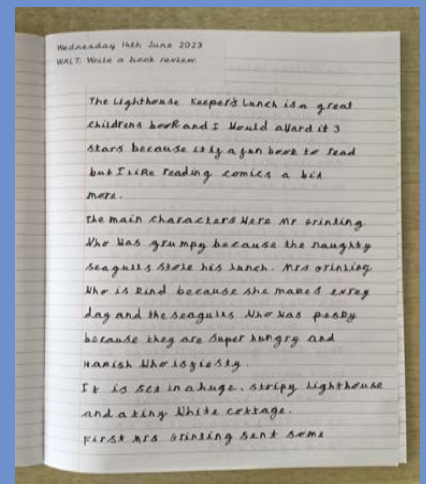 Wednesday 14th June 2023
WALT: Write a book review.
The Lighthouse Keeper's Lunch is a great
childrens book and I would award it 3
stars because it is a fun book to read
but I like reading comics a bid
more.
The main characters were Mr Grinling
who was grumpy because the naughty
seagulls stole his lunch. Mrs Grinling
who is kind because she makes
day and the seagulls who was pesky
because they are super hungry and
Hamish who is
It is set in a huge, stripy lighthouse
and a tiny white cottage.
First Mrs Grinling sent some